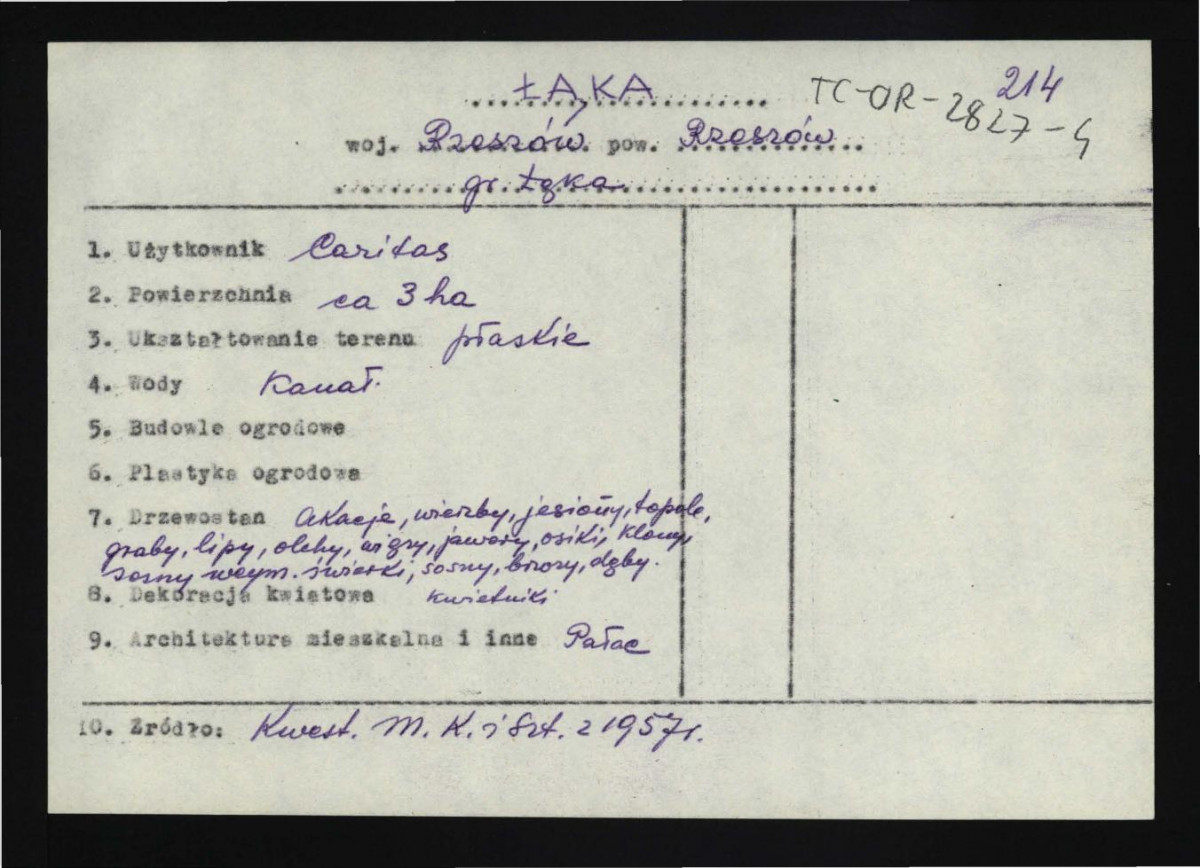 ŁĄKA
214
TC-OR-2827-G
woj. Rzeszów pow. Rzeszów
gr. Łąka
1. Użytkownik Caritas
2. Powierzchnia ca 3 ha
3. Ukształtowanie terenu płaskie
4. Wody Kanał.
5. Budowle ogrodowe
6. Plastyka ogrodowa
7. Drzewostan Akacje, wierzby, jesiony, topole,
graby, lipy, olchy, wigzy, jawory, osiki, klony,
sosny weym. świerki, sosny, brzozy, dęby.
8. Dekoracja kwiatowa kwietniki
9. Architektura mieszkalna i inne Pałac
10. Zródło: Kwest. M. K. i Szt. z 1957 r.